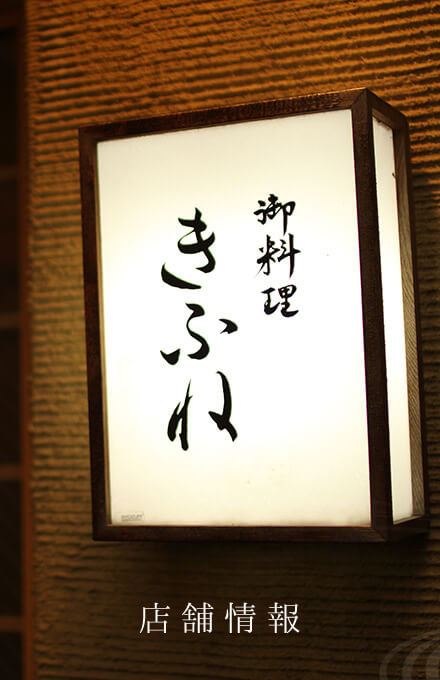 御料理
きふね
店舗情報